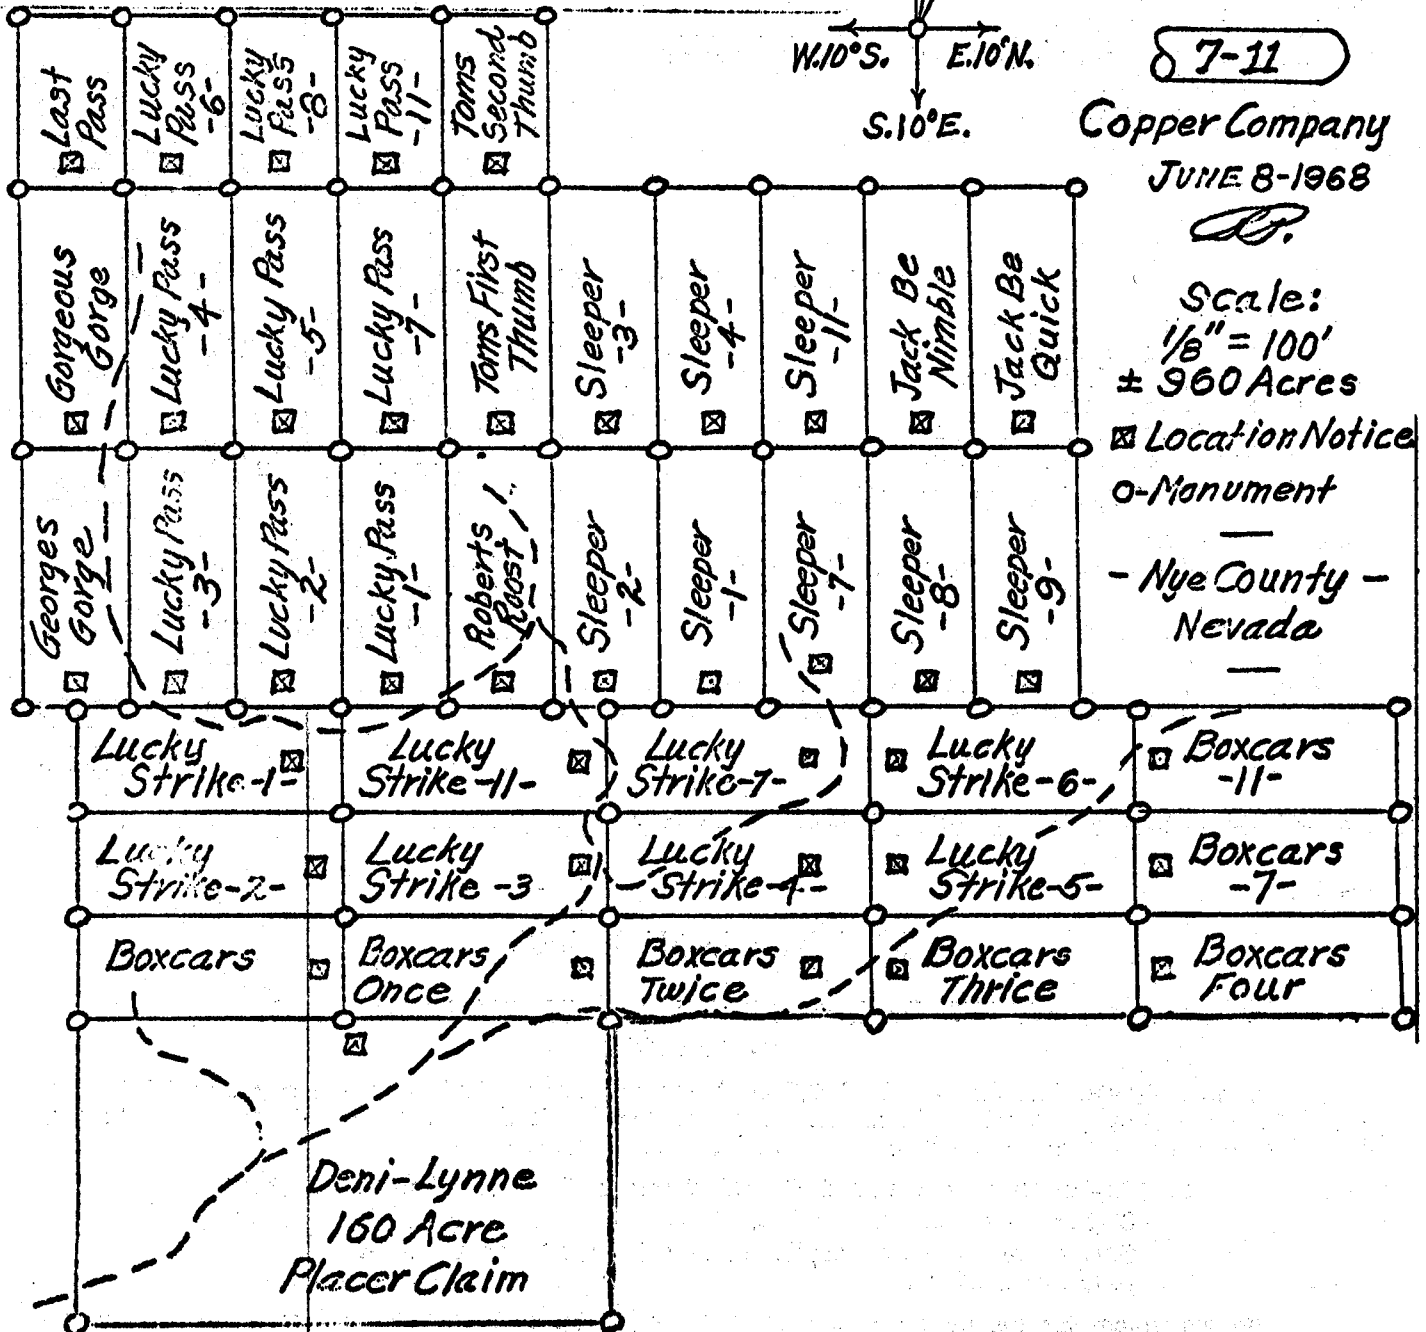 W.10°S. E.10°N.
S.10°E.
7-11
Copper Company
JUNE 8-1968
Scale:
1/8" = 100'
± 960 Acres
Location Notice
O-Monument
- Nye County -
Nevada
Last
Pass
Lucky
Pass
-6-
Lucky
Pass
-8-
Lucky
Pass
-11-
Toms
Second
Thumb
Gorgeous
Gorge
Lucky Pass
-4-
Lucky Pass
-5-
Lucky Pass
-7-
Toms First
Thumb
Sleeper
-3-
Sleeper
-4-
Sleeper
-11-
Jack Be
Nimble
Jack Be
Quick
Georges
Gorge
Lucky Pass
-3-
Lucky Pass
-2-
Lucky Pass
-1-
Roberts
Roost
Sleeper
-2-
Sleeper
-1-
Sleeper
-7-
Sleeper
-8-
Sleeper
-9-
Lucky
Strike-1-
Lucky
Strike-11-
Lucky
Strike-7-
Lucky
Strike-6-
Boxcars
-11-
Lucky
Strike-2-
Lucky
Strike -3
Lucky
Strike-4-
Lucky
Strike-5-
Boxcars
-7-
Boxcars
Boxcars
Once
Boxcars
Twice
Boxcars
Thrice
Boxcars
Four
Deni-Lynne
160 Acre
Placer Claim